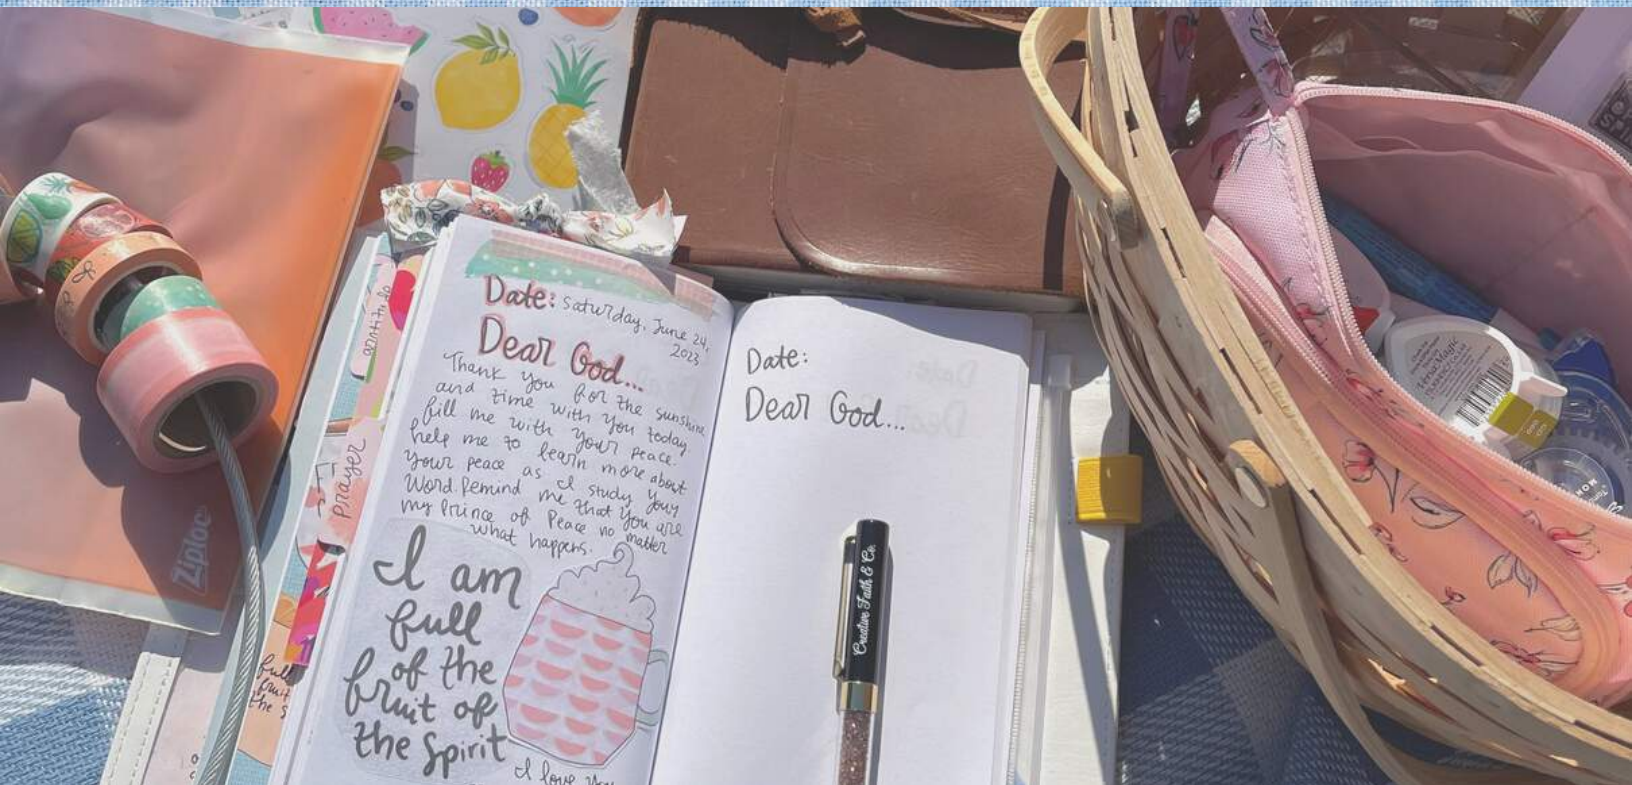 Date: Saturday, June 24,
2023
Dear God...
Thank you for the sunshine
and time with you today.
fill me with your peace.
help me to learn more about
your peace as I study your
Word. Remind me that you are
my Prince of Peace no matter
what happens.
I am
full
of the
fruit of
the Spirit
I love you
Date:
Dear God...
Creative Faith & Co.
Ziploc
prayer
full
fruit
the s